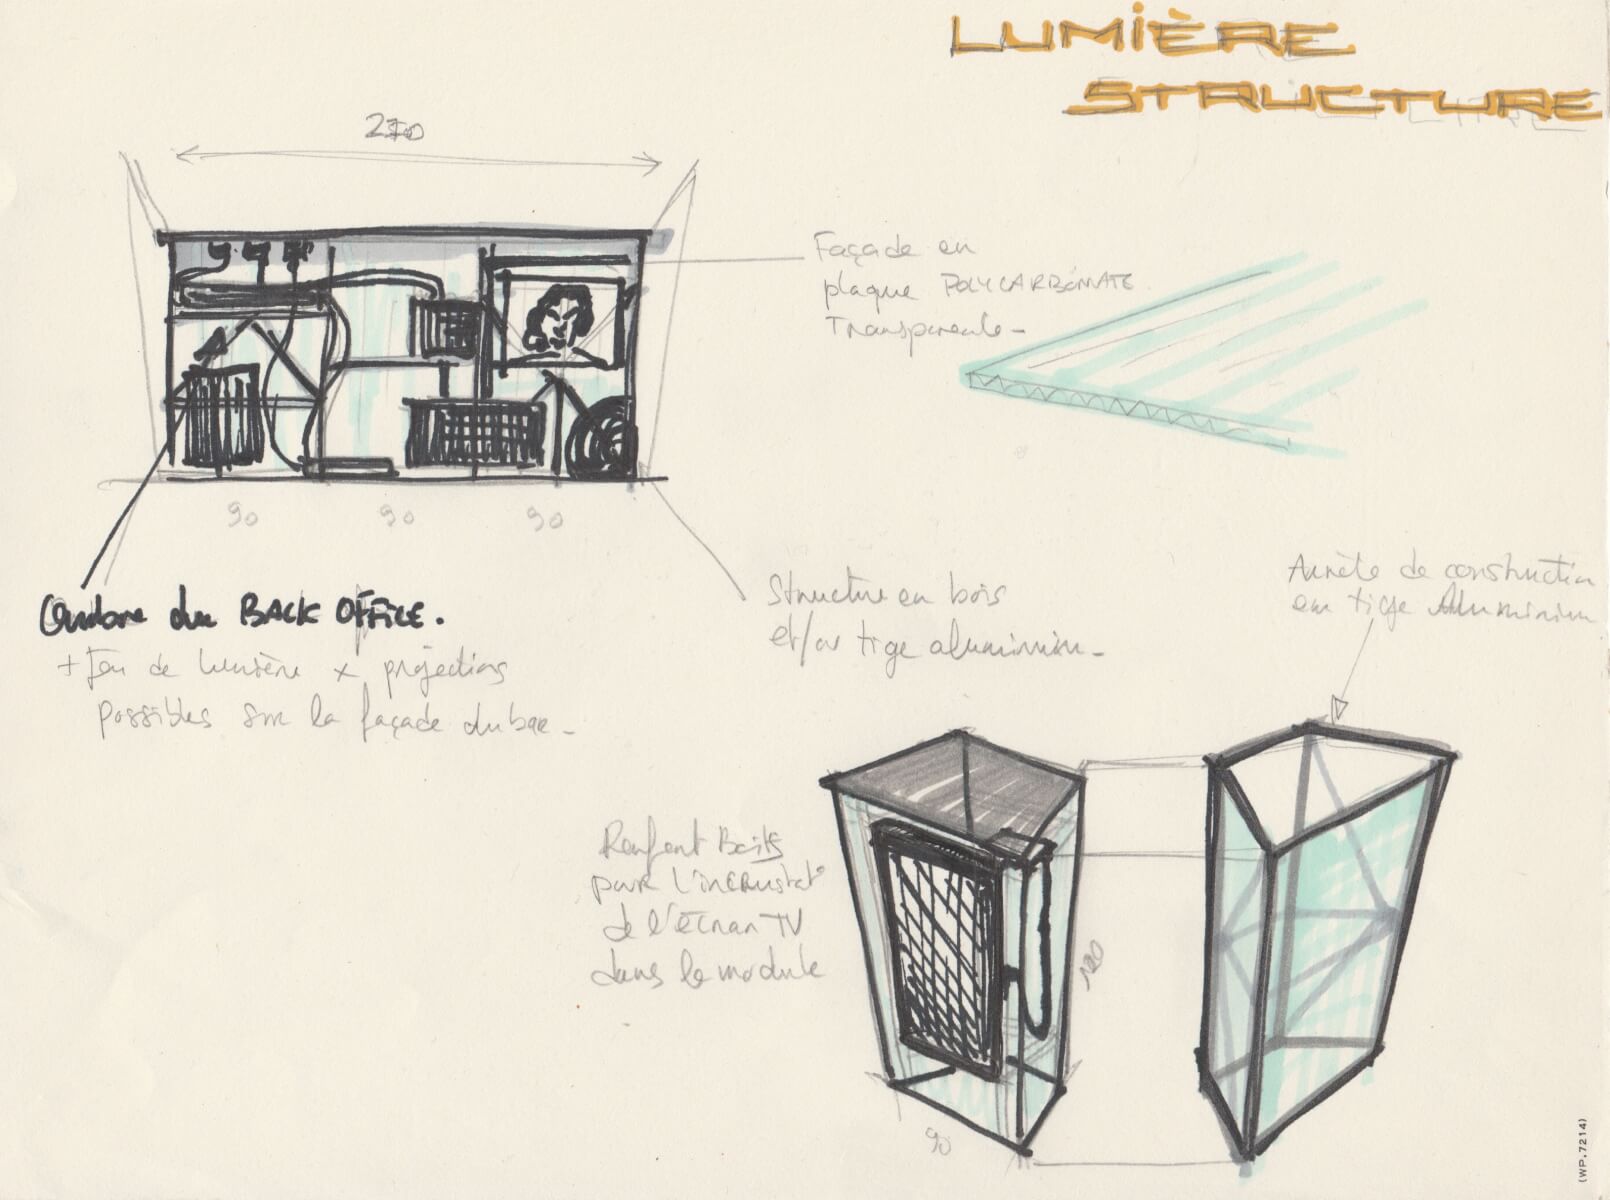 LUMIÈRE
STRUCTURE
270
Façade en
plaque POLYCARBONATE
Transparente -
90 90 90
Ombre du BACK OFFICE.
+ Jeu de lumière x projections
possibles sur la façade du bar -
Structure en bois
et/ou tige aluminium -
Arrête de construction
en tige Aluminium
Renfort
pour l'incrustat°
de l'écran TV
dans le module
120
90
(WP.7214)